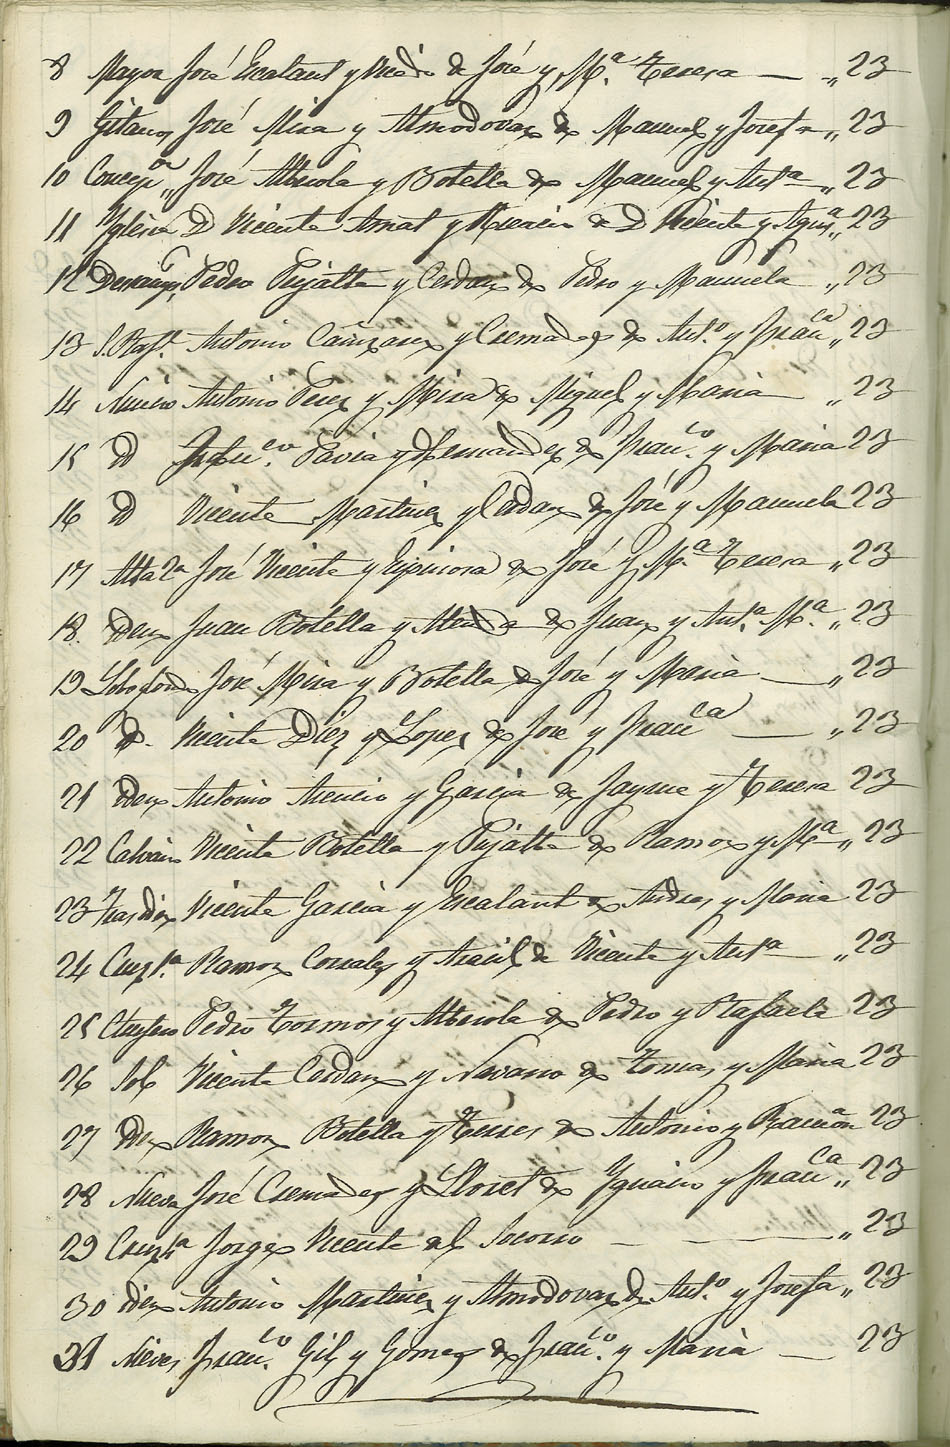 8 Mayor José Escalant y Vicedo de José y M.ª Teresa — „ 23
9 Gitanos José Mira y Almodovar de Manuel y Josefa „ 23
10 Concepon „ José Alberola y Botella de Manuel y Antª „ 23
11 Yglesia D Vicente Amat y Asencio de D Vicente y Agusª „ 23
12 Pedro Pujalte y Cerdan de Pedro y Manuela „ 23
13 S. Rafl. Antonio Cañizares y Cremades de Antº y Francª „ 23
14 Antonio Perez y Mira de Miguel y Maria „ 23
15 D Pavia y Hernandez de Francº. y Maria 23
16 D Vicente Martinez y Cerdan de José y Manuela 23
17 José Vicente y Espinosa de José y Mª Teresa „ 23
18. Dem Juan Botella y de Juan y Ant.ª Mª. „ 23
19 José Mira y Botella de José y Maria — „ 23
20 D. Vicente Diez y Lopez de José y Francª — „ 23
21 Idem Antonio Asencio y Garcia de Jayme y Teresa 23
22 Calvario Vicente Botella y Pujalte de Ramon y Mª „ 23
23 Vicente Garcia y Escalant de Andres y Maria 23
24 Ramon Corrales y Aracil de Vicente y Antª „ 23
25 Pedro Tormos y Alberola de Pedro y Rafaela 23
26 Sol Vicente Cerdan y Navarro de Tomas y Maria 23
27 Idem Ramon Botella y de Antonio y Ramona 23
28 Nueva José Cremades y Lloret de Ygnacio y Francª „ 23
29 Jorge Vicente al Socorro — — „ 23
30 Idem Antonio Martinez y Almodovar de Antº. y Josefa „ 23
31 Nieves Francº. Gil y Gomez de Francº. y Maria — 23